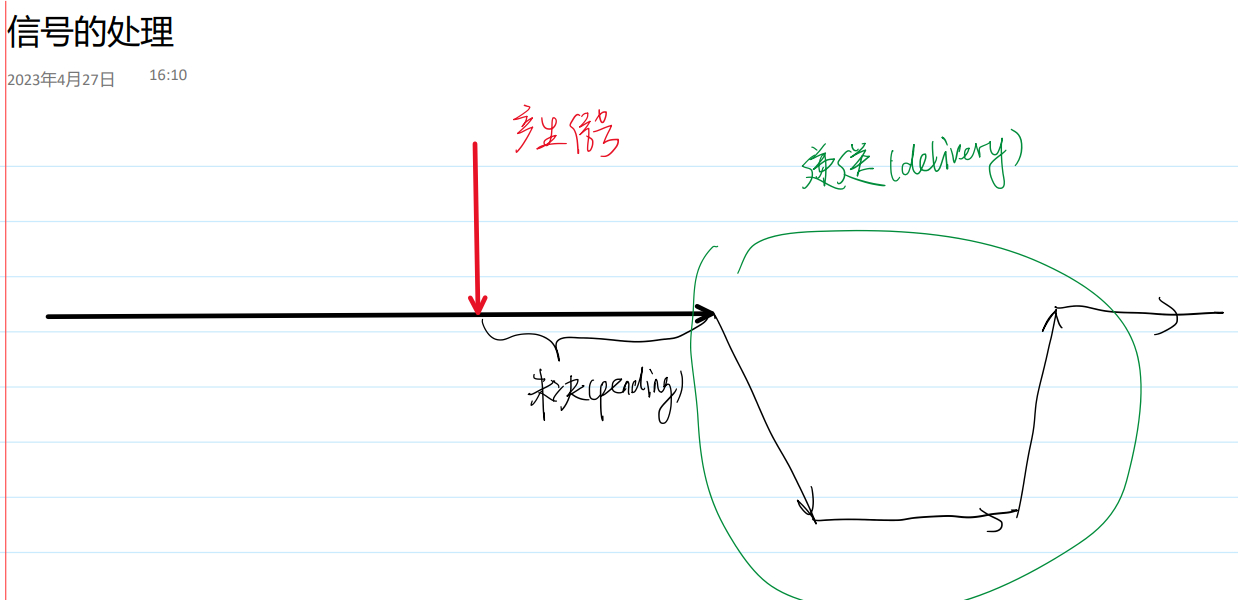 信号的处理
2023年4月27日 16:10
产生信号
递送(delivery)
未决(pending)